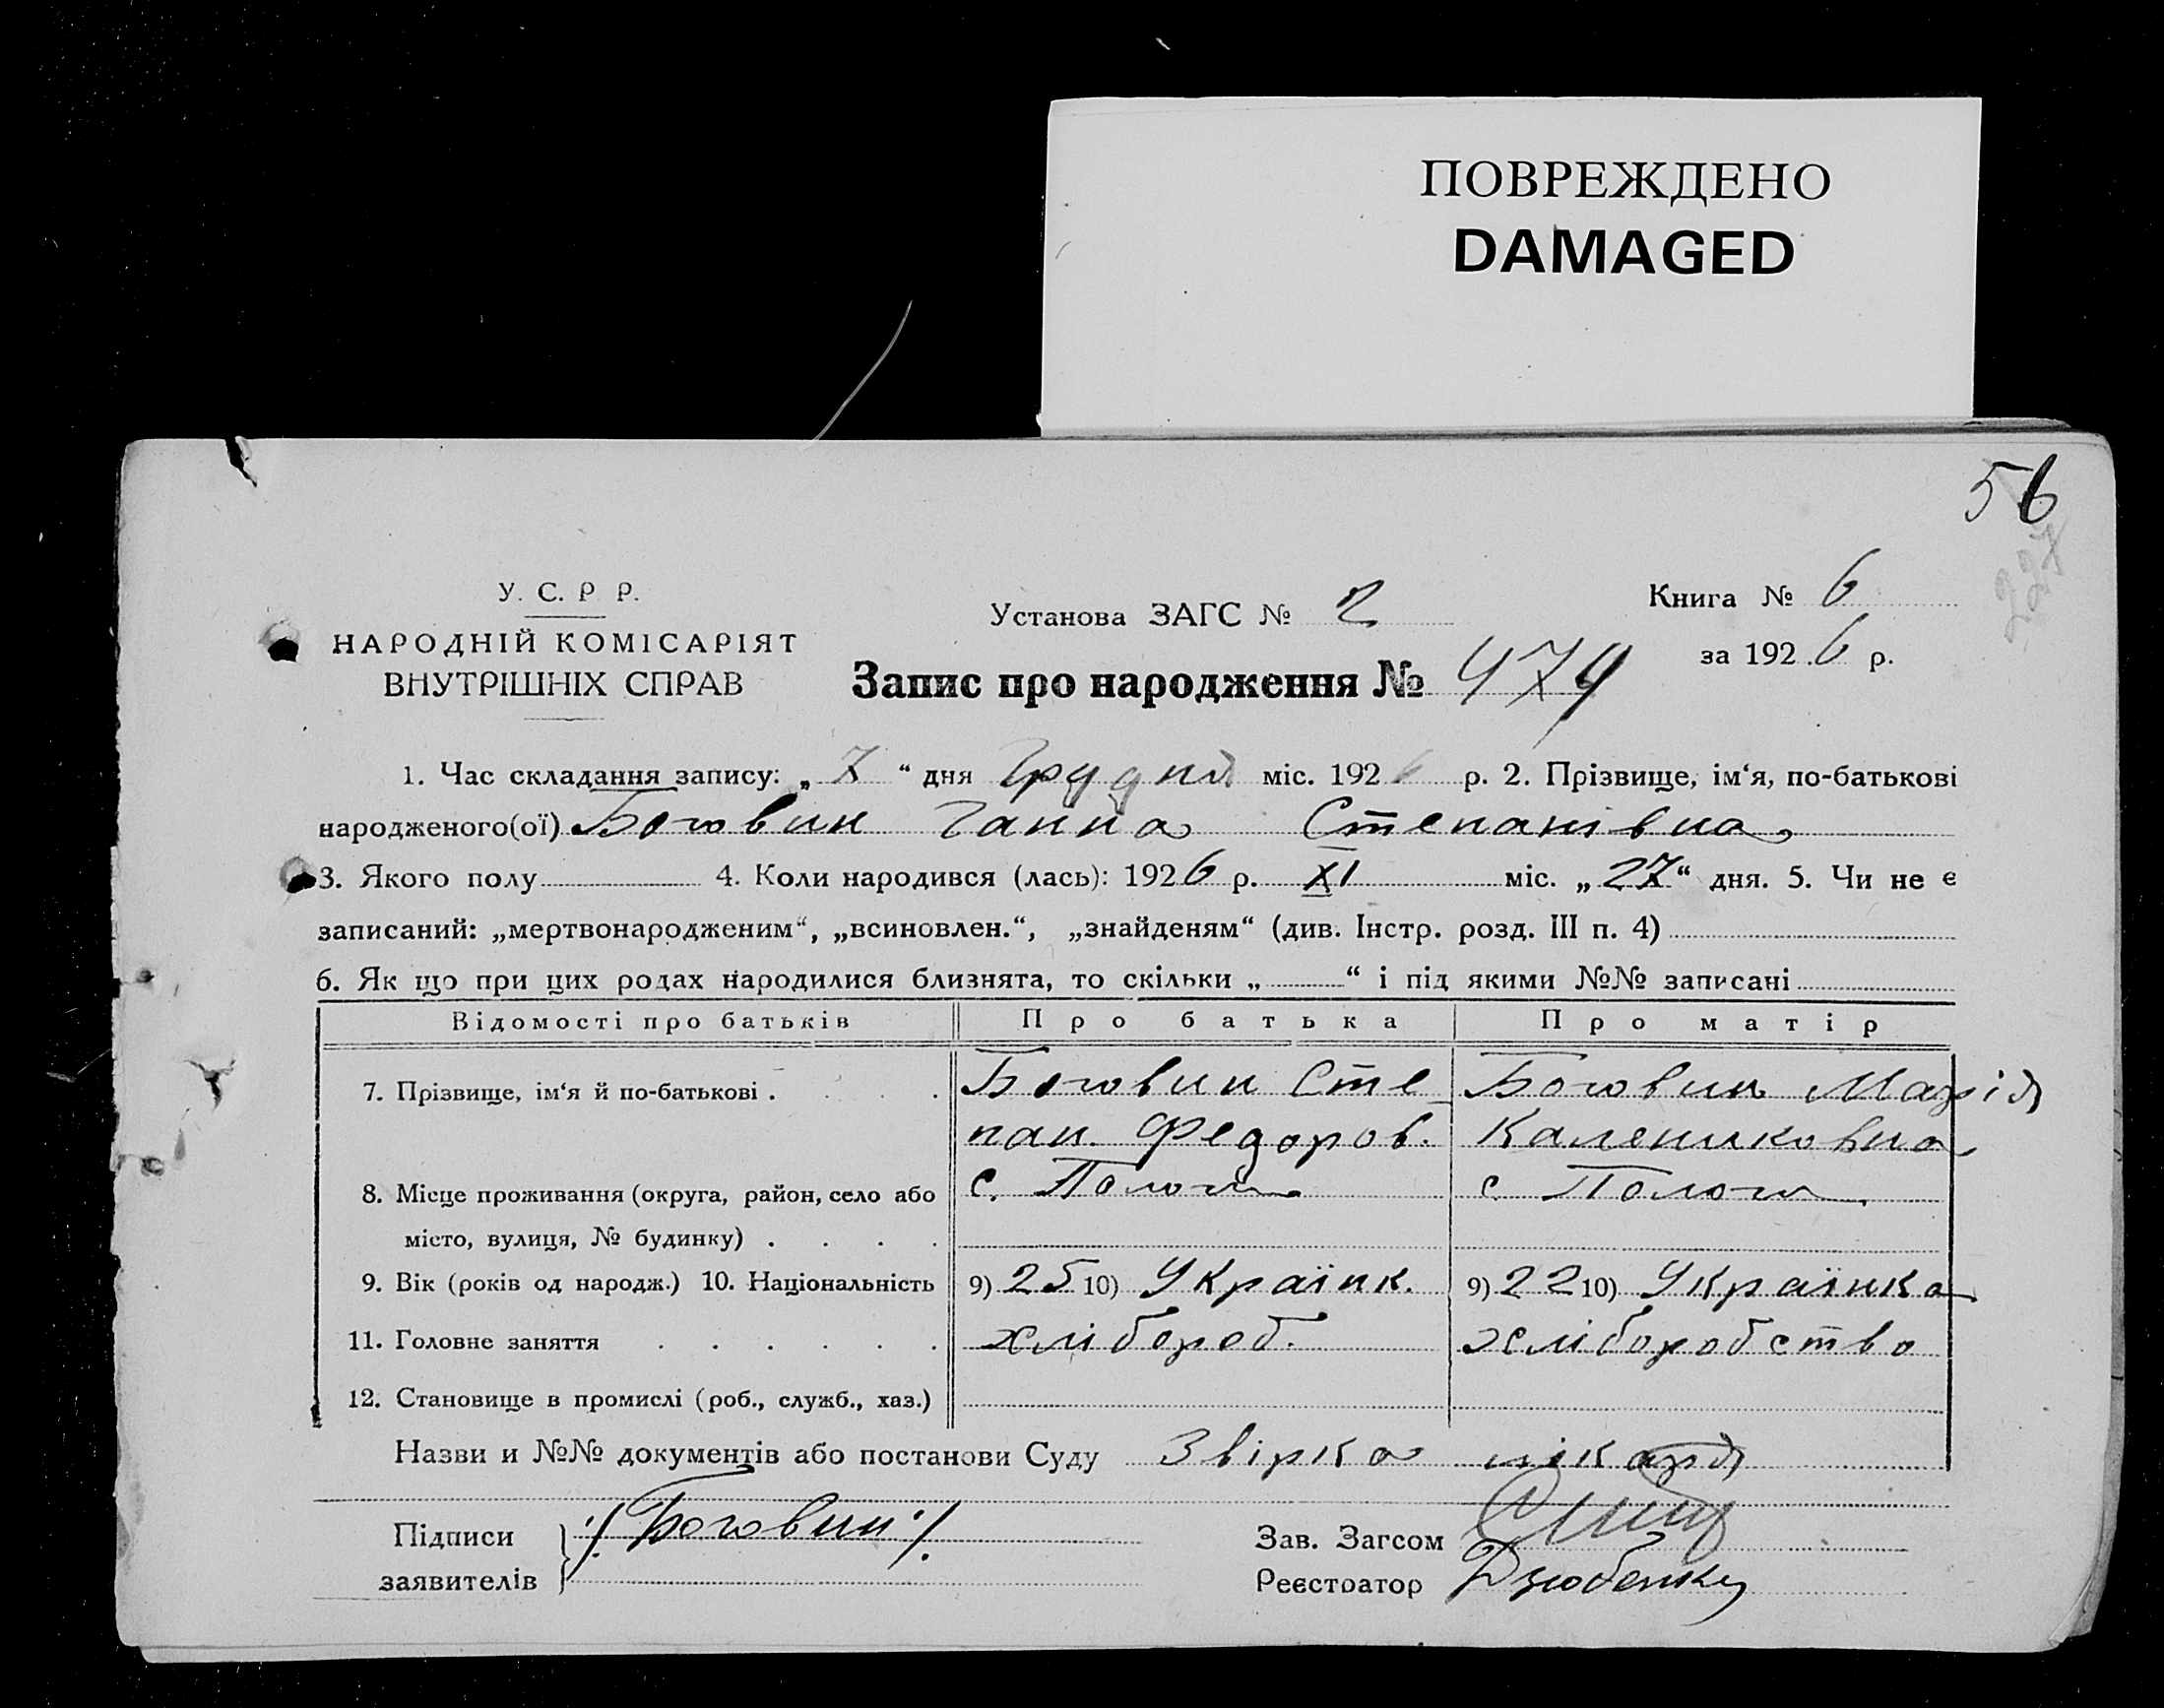 ПОВРЕЖДЕНО
DAMAGED
56
227
У. С. Р Р.
НАРОДНІЙ КОМІСАРІЯТ
ВНУТРІШНІХ СПРАВ
Установа ЗАГС № 2
Книга № 6
за 1926 р.
Запис про народження № 479
1. Час складання запису: „ 7 “ дня Грудня міс. 1926 р. 2. Прізвище, ім‘я, по-батькові
народженого(ої) Боговин Ганна Степанівна
3. Якого полу 4. Коли народився (лась): 1926 р. XI міс. „ 27 “ дня. 5. Чи не є
записаний: „мертвонародженим“, „всиновлен.“, „знайденям“ (див. Інстр. розд. III п. 4)
6. Як що при цих родах народилися близнята, то скільки „ “ і під якими №№ записані
Відомості про батьків Про батька Про матір
7. Прізвище, ім‘я й по-батькові . . . . Боговин Сте Боговин Марія
пан Федоров. Калениковна
8. Місце проживання (округа, район, село або с. Пологи с. Пологи
місто, вулиця, № будинку) . . . .
9. Вік (років од народж.) 10. Національність 9) 25 10) Українк. 9) 22 10) Українка
11. Головне заняття . . . . . . хлібороб. хліборобство
12. Становище в промислі (роб., служб., хаз.)
Назви и №№ документів або постанови Суду Звірка лікаря
Підписи /Боговин/. Зав. Загсом
заявителів Реєстратор Дзюбенку